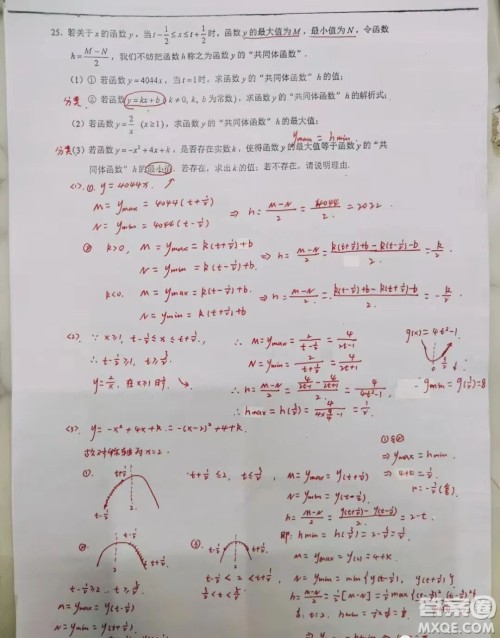 25. 若关于 x 的函数 y，当 t−1/2≤x≤t+1/2 时，函数 y 的最大值为 M，最小值为 N，令函数
h=(M−N)/2，我们不妨把函数 h 称之为函数 y 的“共同体函数”.
(1) ① 若函数 y=4044x，当 t=1 时，求函数 y 的“共同体函数” h 的值；
分类 ② 若函数 y=kx+b (k≠0, k, b 为常数)，求函数 y 的“共同体函数” h 的解析式；
(2) 若函数 y=2/x (x≥1)，求函数 y 的“共同体函数” h 的最大值；
ymax = hmin
分类 (3) 若函数 y=−x²+4x+k，是否存在实数 k，使得函数 y 的最大值等于函数 y 的“共
同体函数” h 的最小值. 若存在，求出 k 的值；若不存在，请说明理由.
(1). ①. y=4044x ↗
M = ymax = 4044(t+1/2)
N = ymin = 4044(t-1/2)
⇒ h = (M-N)/2 = 4044/2 = 2022
② k>0, M = ymax = k(t+1/2)+b
N = ymin = k(t-1/2)+b
⇒ h = (M-N)/2 = (k(t+1/2)+b-k(t-1/2)-b)/2 = k/2.
k<0, M = ymax = k(t-1/2)+b
N = ymin = k(t+1/2)+b
⇒ h = (M-N)/2 = (k(t-1/2)+b-k(t+1/2)-b)/2 = -k/2.
(2). ∵ x≥1, t-1/2≤x≤t+1/2,
∴ t-1/2≥1, t≥3/2.
y=2/x, 在 x≥1 时 ↘
∴ M = ymax = 2/(t-1/2) = 4/(2t-1)
N = ymin = 2/(t+1/2) = 4/(2t+1)
∴ h = (M-N)/2 = (4/(2t-1) - 4/(2t+1))/2 = 4/(4t²-1)
g(x)=4t²-1
gmin = g(3/2)=8
∴ hmax = h(3/2) = = 1/2.
(3). y = -x²+4x+k = -(x-2)²+4+k.
x=2.
①.
t+1/2 ≤ 2, t≤3/2
M = ymax = y(t+1/2)
N = ymin = y(t-1/2)
h = (M-N)/2 = (y(t+1/2)-y(t-1/2))/2 = 2-t.
⇒ ymax = hmin
②
t-1/2≥2
M = ymax = y(t-1/2)
③
t-1/2 < 2 < t+1/2
3/2 < t < 5/2
M = ymax = y(2) = 4+k
N = ymin = min{y(t-1/2), y(t+1/2)}
答案圈
MXQE.COM